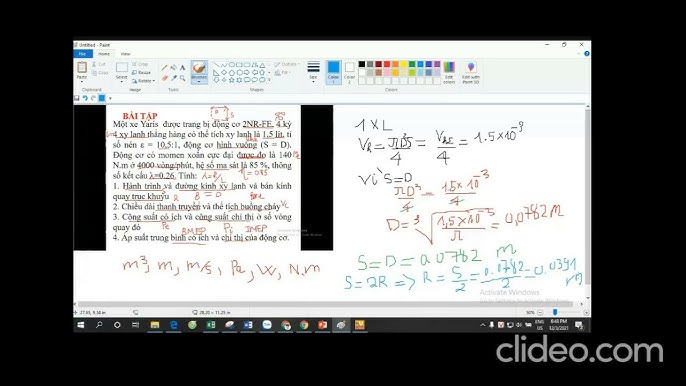 Untitled - Paint
File
Home
View
Crop
Resize
Rotate
Select
Brushes
Shapes
Size
Color 1
Color 2
Edit colors
Edit with Paint 3D
BÀI TẬP
Một xe Yaris được trang bị động cơ 2NR-FE, 4 kỳ
4 xy lanh thẳng hàng có thể tích xy lanh là 1,5 lít, tỉ
số nén ε = 10,5:1, động cơ hình vuông (S = D).
Động cơ có momen xoắn cực đại được đo là 140
N.m ở 4000 vòng/phút, hệ số ma sát là 85 %, thông
số kết cấu λ=0.26. Tính: λ=R/L η=0.85
1. Hành trình và đường kính xy lanh và bán kính
quay trục khuỷu R S = D
2. Chiều dài thanh truyền và thể tích buồng cháy Vc
3. Công suất có ích và công suất chỉ thị ở số vòng
quay đó Pe BMEP Pi IMEP
4. Áp suất trung bình có ích và chỉ thị của động cơ.
m³, m, m/s, Pa, W, N.m
1 XL
Vh = πD²S/4 = 1.5×10⁻³/4
Vì S=D
πD³/4 = 1.5×10⁻³/4
D = ³√(1,5×10⁻³/π) = 0,0782 m
S = D = 0.0782 m
S=2R => R = S/2 = 0.0782/2 = 0.0391 m
Activate Windows
Go to Settings to activate Windows.
27.65, 9.54 in
28,20 × 11,25 in
50%
ENG
US
8:48 PM
12/3/2021
clideo.com